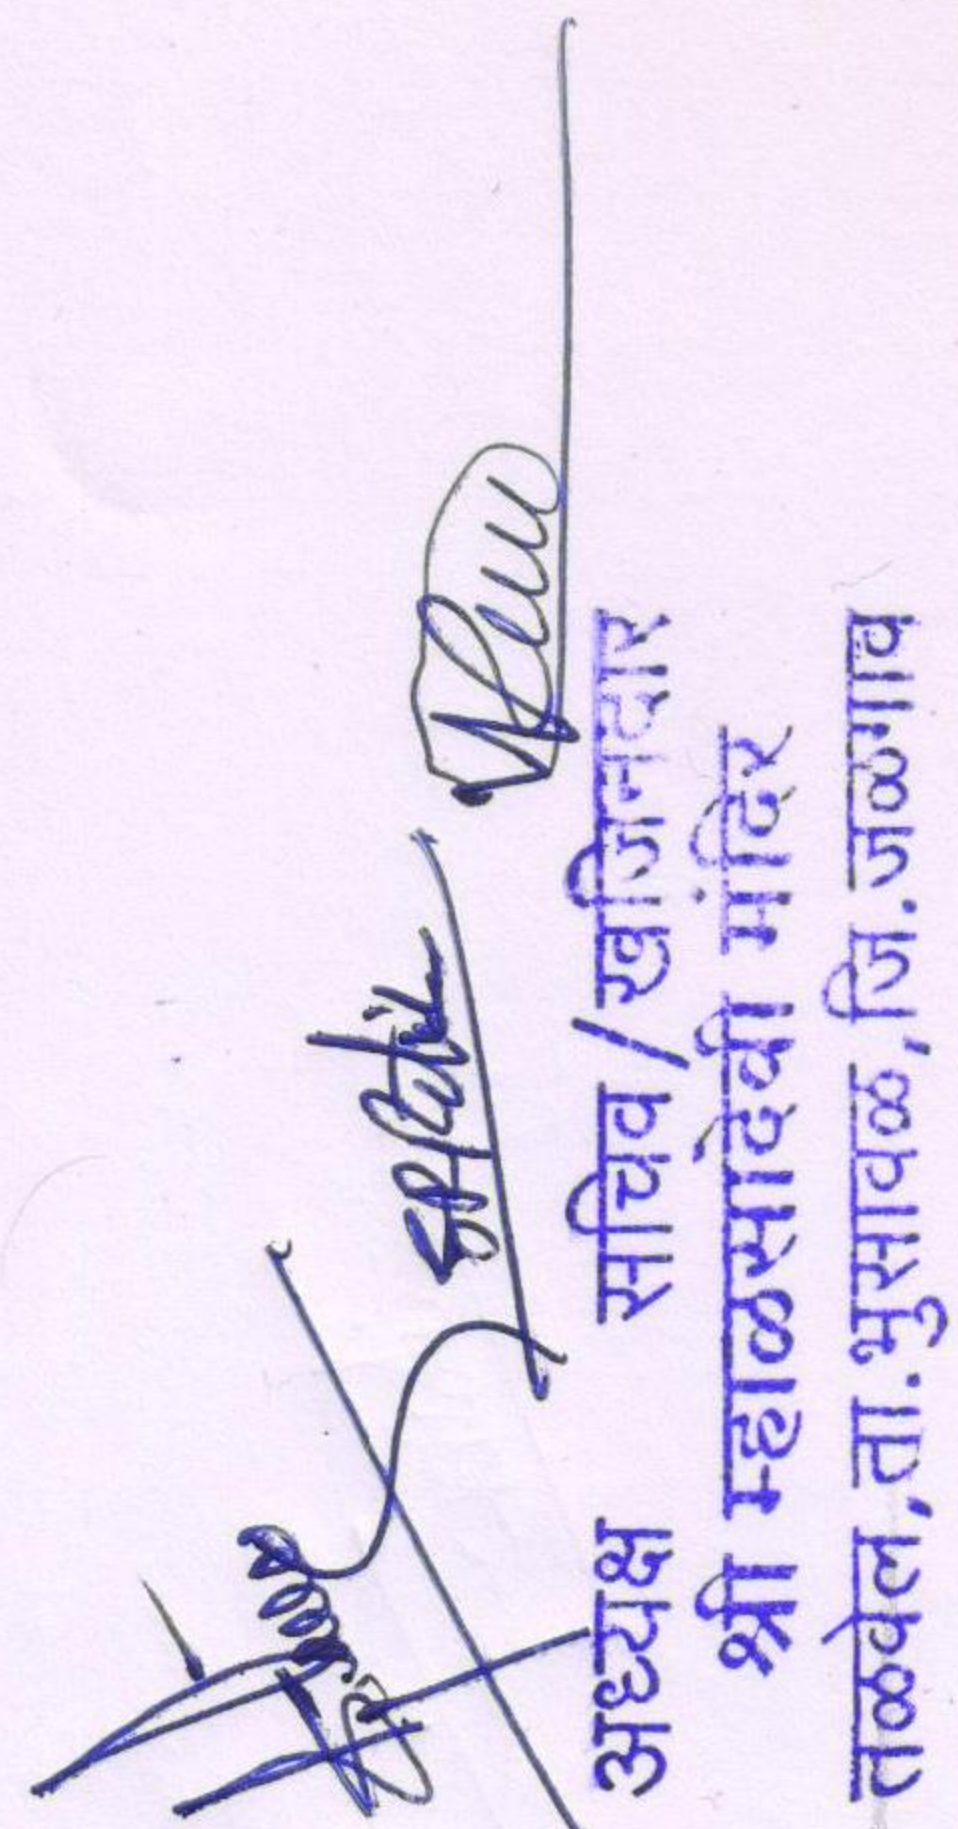 SPPatil
अध्यक्ष सचिव / खजिनदार
श्री म्हाळसादेवी मंदिर
तळवेल, ता. भुसावळ, जि. जळगाव